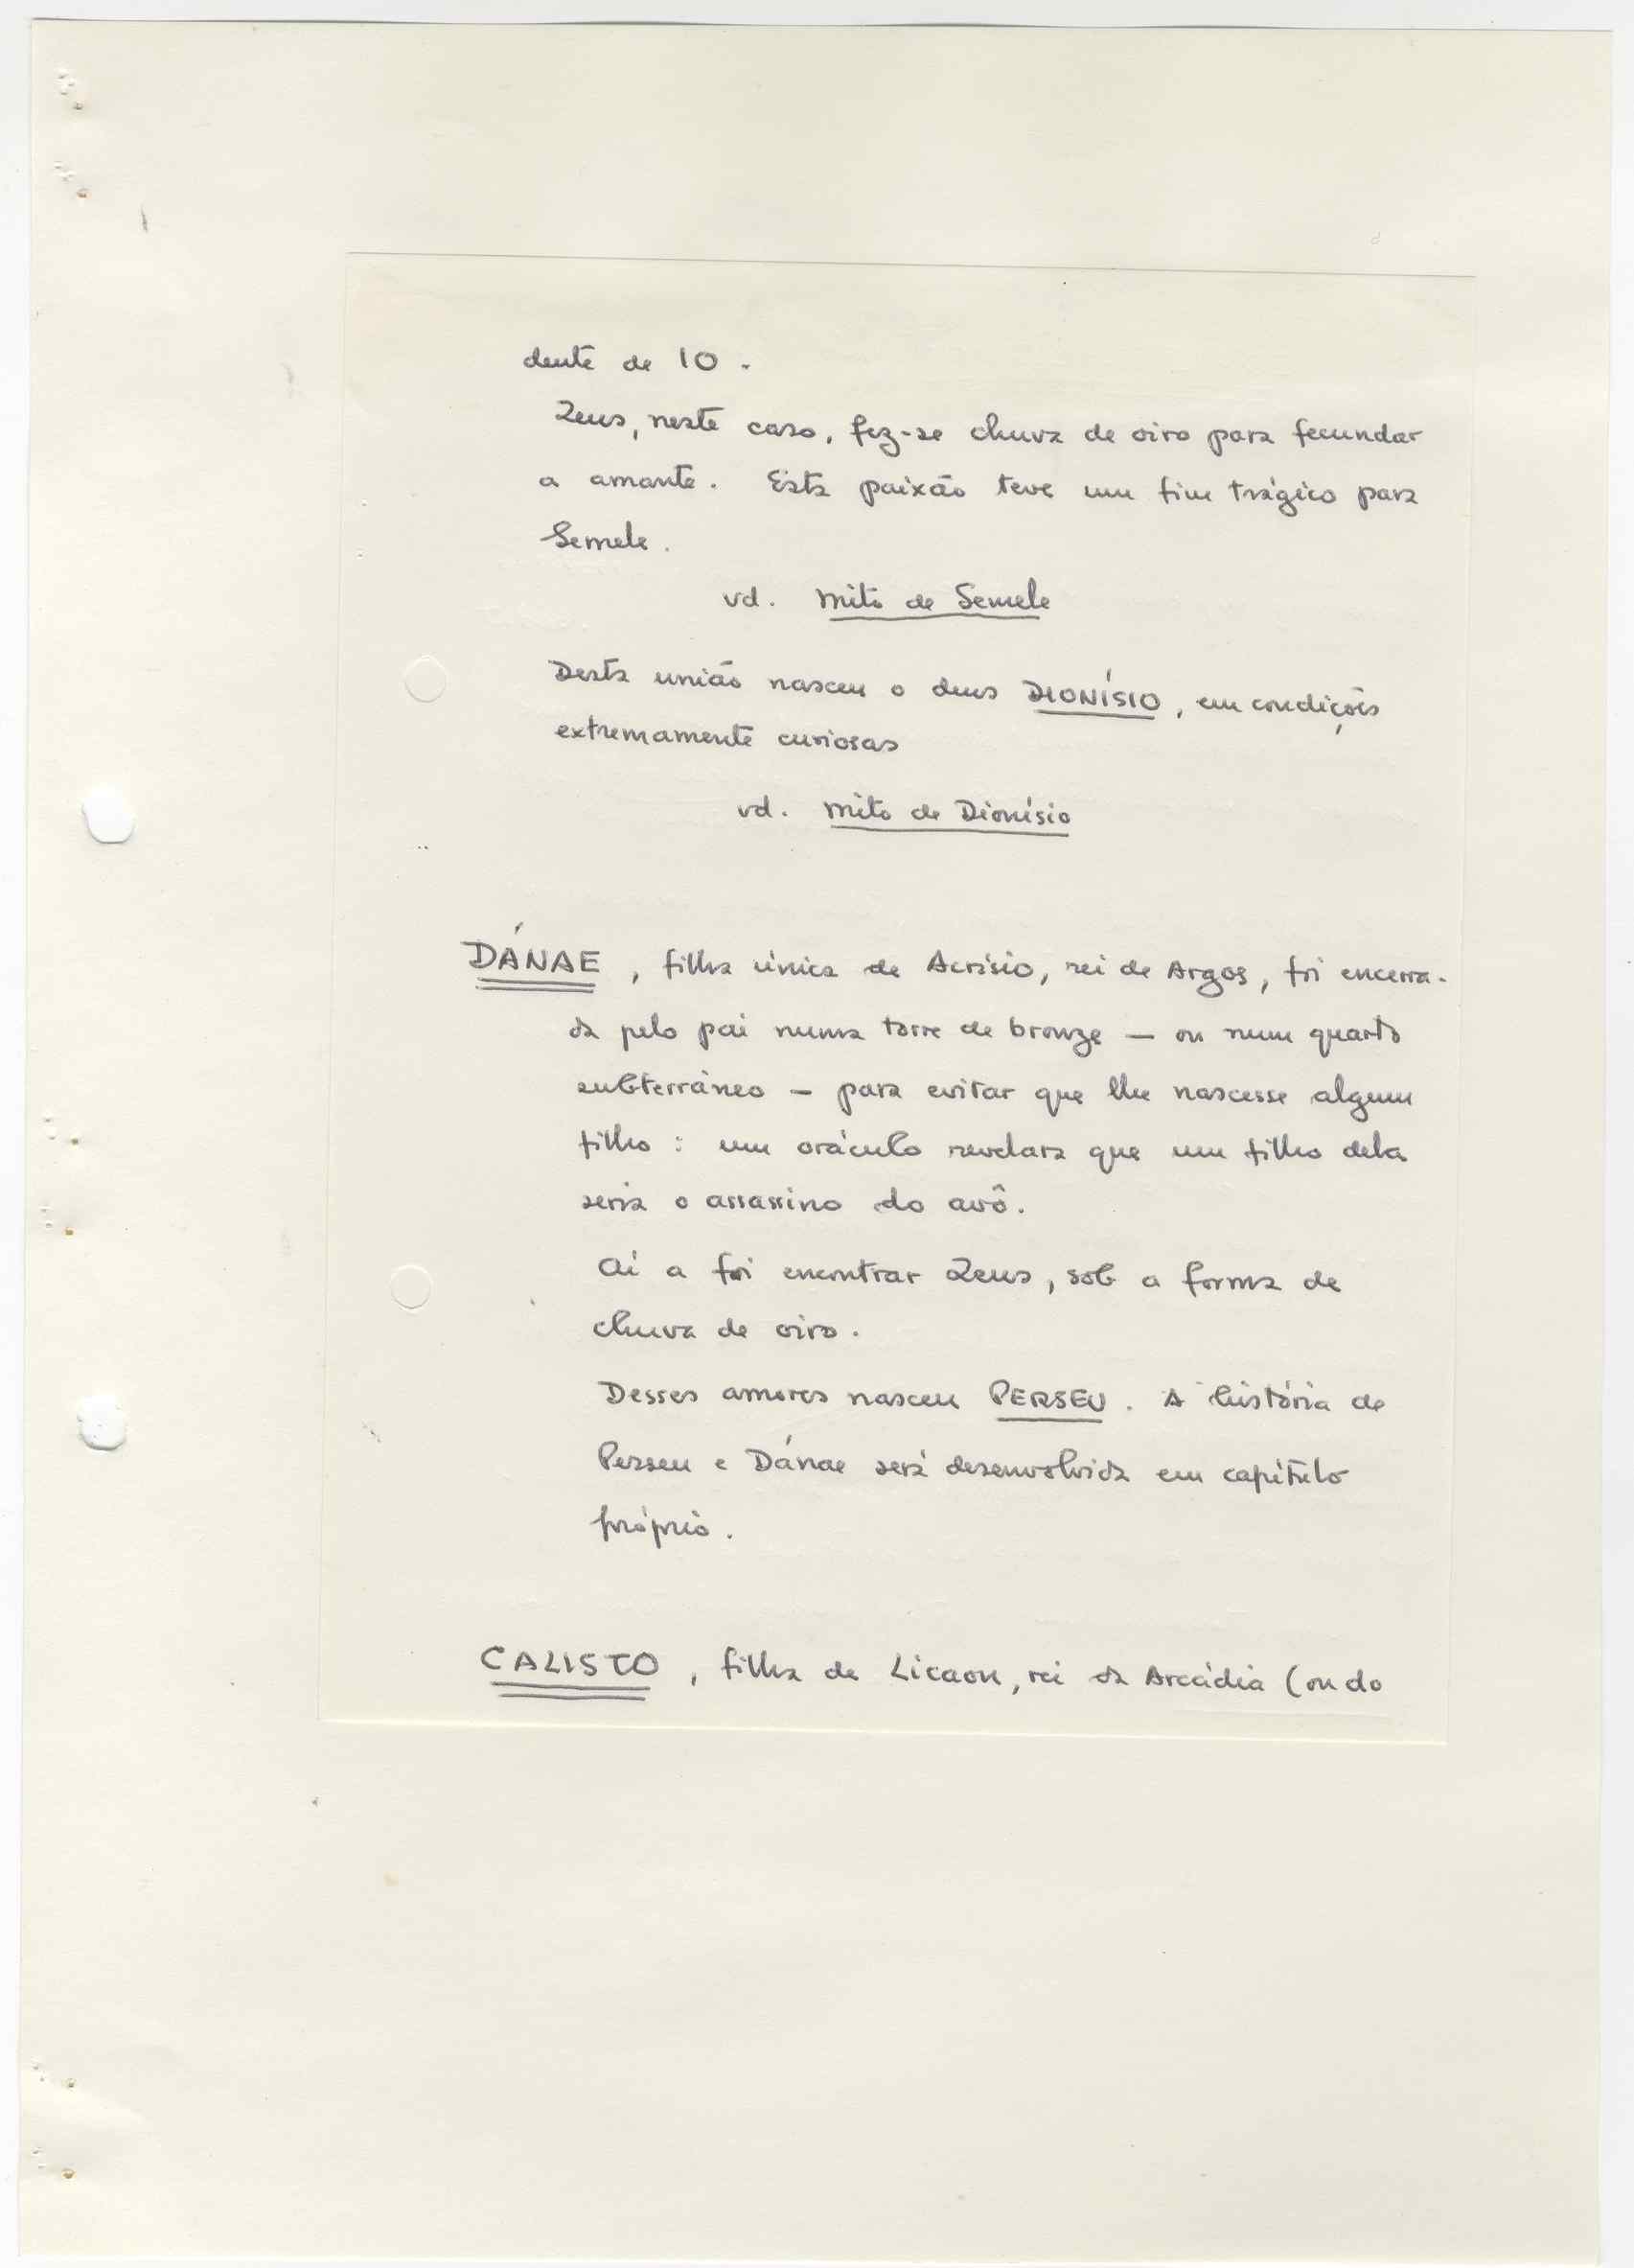 dente de IO.
Zeus, neste caso, fez-se chuva de oiro para fecundar
a amante. Esta paixão teve um fim trágico para
Semele.
vd. Mito de Semele
Desta união nasceu o deus DIONÍSIO, em condições
extremamente curiosas
vd. Mito de Dionísio
DÁNAE, filha única de Acrísio, rei de Argos, foi encerra-
da pelo pai numa torre de bronze — ou num quarto
subterrâneo — para evitar que lhe nascesse algum
filho: um oráculo revelara que um filho dela
seria o assassino do avô.
Aí a foi encontrar Zeus, sob a forma de
chuva de oiro.
Desses amores nasceu PERSEU. A história de
Perseu e Dánae será desenvolvida em capítulo
próprio.
CALISTO, filha de Licaon, rei da Arcádia (ou do